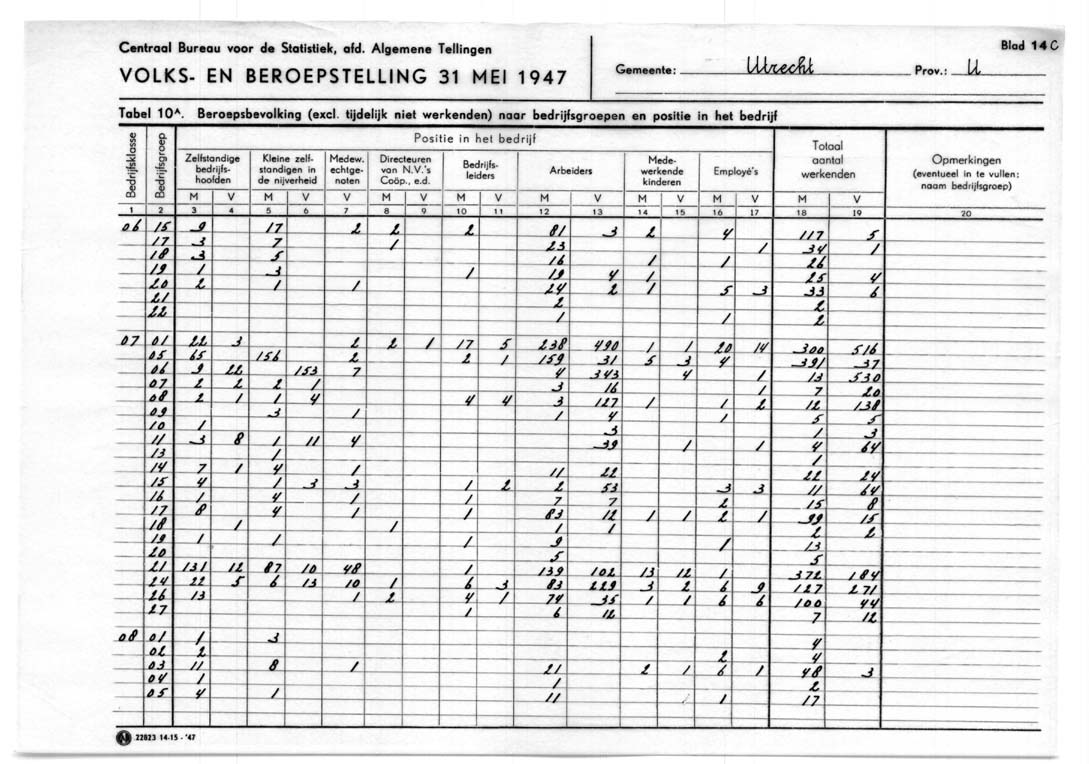 Centraal Bureau voor de Statistiek, afd. Algemene Tellingen
Blad 14 C
VOLKS- EN BEROEPSTELLING 31 MEI 1947
Gemeente: Utrecht Prov.: U
Tabel 10A. Beroepsbevolking (excl. tijdelijk niet werkenden) naar bedrijfsgroepen en positie in het bedrijf
Bedrijfsklasse
Bedrijfsgroep
Positie in het bedrijf
Zelfstandige bedrijfs-hoofden
Kleine zelf-standigen in de nijverheid
Medew. echtge-noten
Directeuren van N.V.'s Coöp., e.d.
Bedrijfs-leiders
Arbeiders
Mede-werkende kinderen
Employé's
Totaal aantal werkenden
Opmerkingen (eventueel in te vullen: naam bedrijfsgroep)
M V M V V M V M V M V M V M V M V
1 2 3 4 5 6 7 8 9 10 11 12 13 14 15 16 17 18 19 20
06 15 9 17 2 2 2 81 3 2 4 117 5
17 3 7 1 23 1 34 1
18 3 5 16 1 1 26
19 1 3 1 19 4 1 25 4
20 2 1 1 24 2 1 5 3 33 6
21 2 2
22 1 1 2
07 01 22 3 2 2 1 17 5 238 490 1 1 20 14 300 516
05 65 156 2 2 1 159 31 5 3 4 391 37
06 9 22 153 7 4 343 4 1 13 530
07 2 2 2 1 3 16 1 7 20
08 2 1 1 4 4 4 3 127 1 1 2 12 138
09 3 1 1 4 1 5 5
10 1 3 1 3
11 3 8 1 11 4 39 1 1 4 64
13 1 1
14 7 1 4 1 11 22 22 24
15 4 1 3 3 1 2 2 53 3 3 11 64
16 1 4 1 1 7 7 2 15 8
17 8 4 1 1 83 12 1 1 2 1 99 15
18 1 1 1 1 2 2
19 1 1 1 9 1 13
20 5 5
21 131 12 87 10 48 1 139 102 13 12 1 372 184
24 22 5 6 13 10 1 6 3 83 229 3 2 6 9 127 271
26 13 1 2 4 1 74 35 1 1 6 6 100 44
27 1 6 12 7 12
08 01 1 3 4
02 2 2 4
03 11 8 1 21 2 1 6 1 48 3
04 1 1 2
05 4 1 11 1 17
22823 14-15 - '47